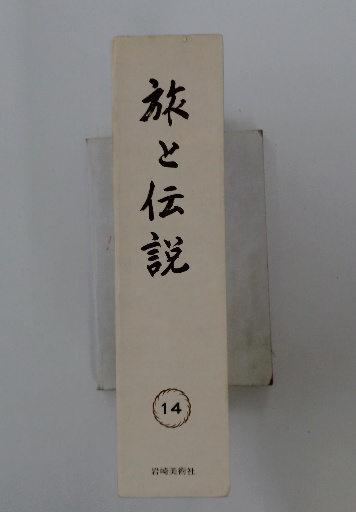 旅と伝説
14
岩崎美術社